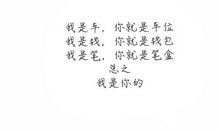 我是车，你就是车位
我是钱，你就是钱包
我是笔，你就是笔盒
总之
我是你的